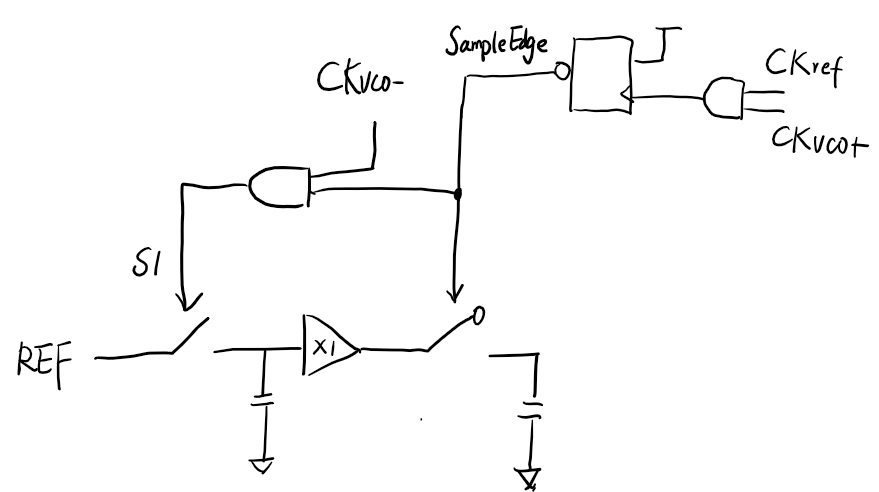 SampleEdge
CKref
CKvco-
CKvco+
S1
REF
X1